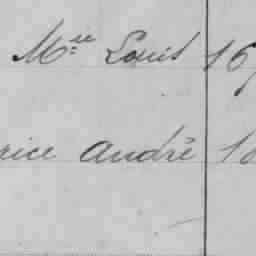 M.ce Louis 16
rice André 1